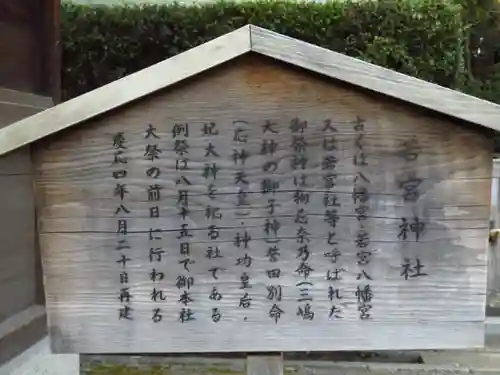 若宮神社
古くは八幡宮・若宮八幡宮
又は若宮社等と呼ばれた
御祭神は物忌奈乃命(三嶋
大神の御子神)誉田別命
(応神天皇)・神功皇后・
妃大神を祀る社である
例祭は八月十五日で御本社
大祭の前日に行われる
慶応四年八月二十日再建